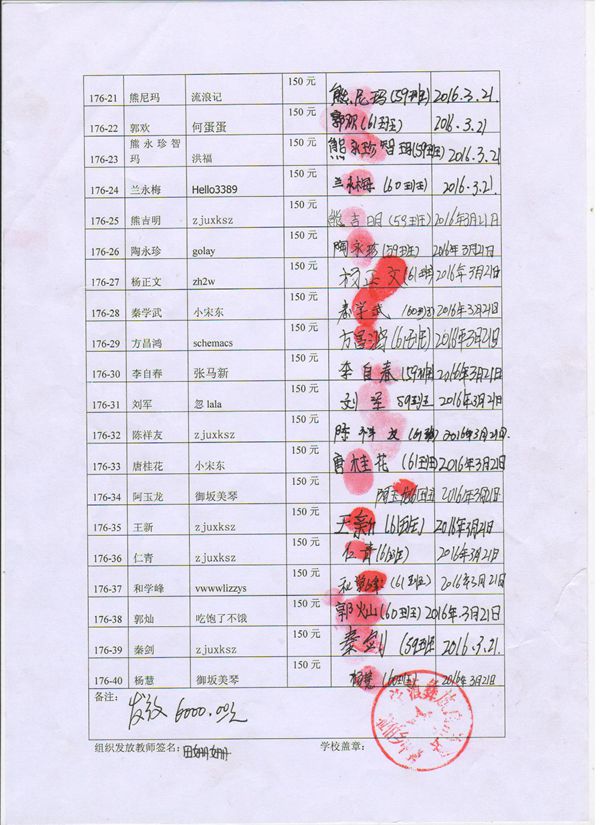 176-21 熊尼玛 流浪记 150 元 熊尼玛(59班) 2016.3.21
176-22 郭欢 何蛋蛋 150 元 郭欢(61班) 2016.3.21
176-23 熊永珍智玛 洪福 150 元 熊永珍智玛(59班) 2016.3.21
176-24 兰永梅 Hello3389 150 元 兰永梅(60班) 2016.3.21.
176-25 熊吉明 zjuxksz 150 元 熊吉明(59班) 2016年3月21日
176-26 陶永珍 golay 150 元 陶永珍(59班) 2016年3月21日
176-27 杨正文 zh2w 150 元 杨正文(61班) 2016年3月21日
176-28 秦学武 小宋东 150 元 秦学武(60班) 2016年3月21日
176-29 方昌鸿 schemacs 150 元 方昌鸿(61班) 2016年3月21日
176-30 李自春 张马新 150 元 李自春(59班) 2016年3月21日
176-31 刘军 忽 lala 150 元 刘军 59班 2016年3月21日
176-32 陈祥友 zjuxksz 150 元 陈祥友(61班) 2016年3月21日.
176-33 唐桂花 小宋东 150 元 唐桂花(61班) 2016年3月21日
176-34 阿玉龙 御坂美琴 150 元 阿玉龙 2016年3月21日
176-35 王新 zjuxksz 150 元 王新(61班) 2016年3月21日
176-36 仁青 zjuxksz 150 元 仁青 2016年3月21日
176-37 和学峰 vwwwlizzys 150 元 和学峰(61班) 2016年3月21日
176-38 郭灿 吃饱了不饿 150 元 郭火山(60班) 2016年3月21日
176-39 秦剑 zjuxksz 150 元 秦剑(59班 2016.3.21.
176-40 杨慧 御坂美琴 150 元 杨慧(60班) 2016年3月21日
备注:
发放6000.00元
组织发放教师签名: 田姗姗 学校盖章: